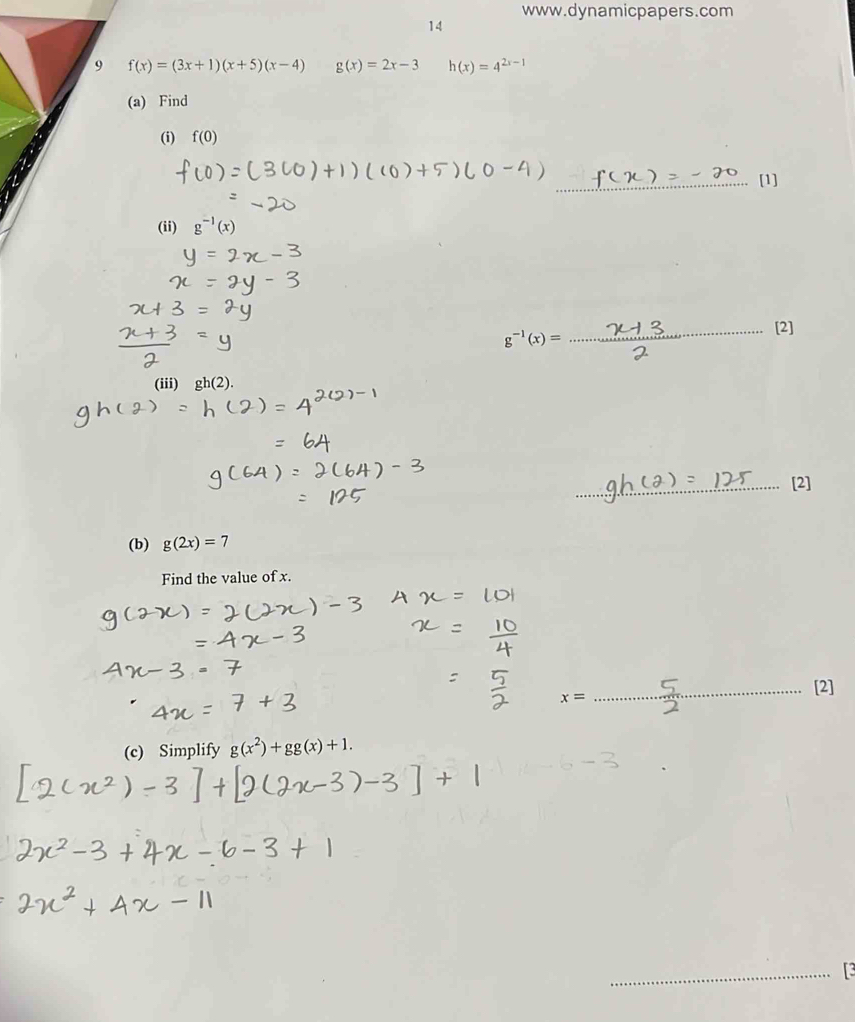 www.dynamicpapers.com
14
9 f(x) = (3x+1)(x+5)(x−4) g(x) = 2x−3 h(x) = 4^{2x−1}
(a) Find
(i) f(0)
f(0) = (3(0)+1)((0)+5)(0-4) f(x) = -20 [1]
= -20
(ii) g⁻¹(x)
y = 2x - 3
x = 2y - 3
x+3 = 2y
\frac{x+3}{2} = y g⁻¹(x) = \frac{x+3}{2} [2]
(iii) gh(2).
gh(2) = h(2) = 4^{2(2)-1}
= 64
g(64) = 2(64) - 3
= 125 gh(2) = 125 [2]
(b) g(2x) = 7
Find the value of x.
g(2x) = 2(2x) - 3 4x = 10
= 4x - 3 x = \frac{10}{4}
4x - 3 = 7 = \frac{5}{2}
4x = 7 + 3 x = \frac{5}{2} [2]
(c) Simplify g(x²) + gg(x) + 1.
[2(x²) - 3] + [2(2x-3)-3] + 1
2x² - 3 + 4x - 6 - 3 + 1
= 2x² + 4x - 11
[3